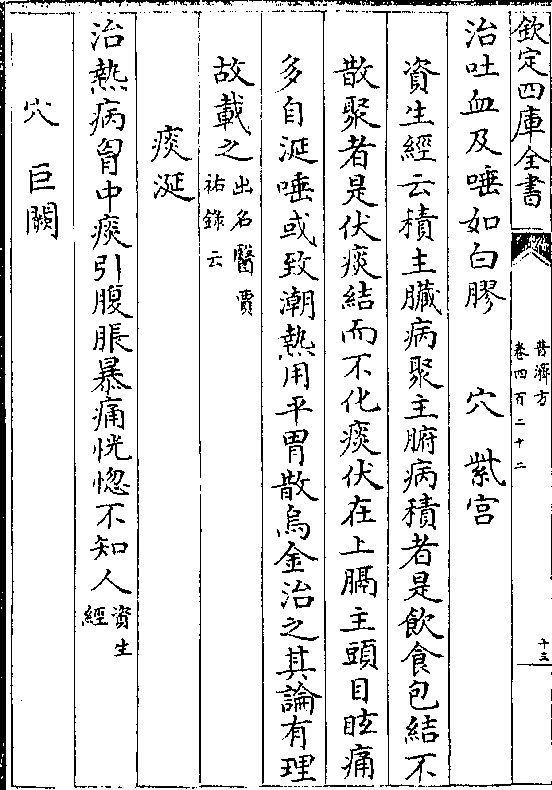 欽定四庫全書
普濟方
卷四百二十二
十三
治吐血及唾如白膠　穴　紫宫
資生經云積主臟病聚主腑病積者是飲食包結不
散聚者是伏痰結而不化痰伏在上膈主頭目眩痛
多自涎唾或致潮熱用平胃散烏金治之其論有理
故載之出名醫賈祐錄云
痰涎
治熱病胷中痰引腹脹暴痛恍惚不知人資生經
穴　巨闕